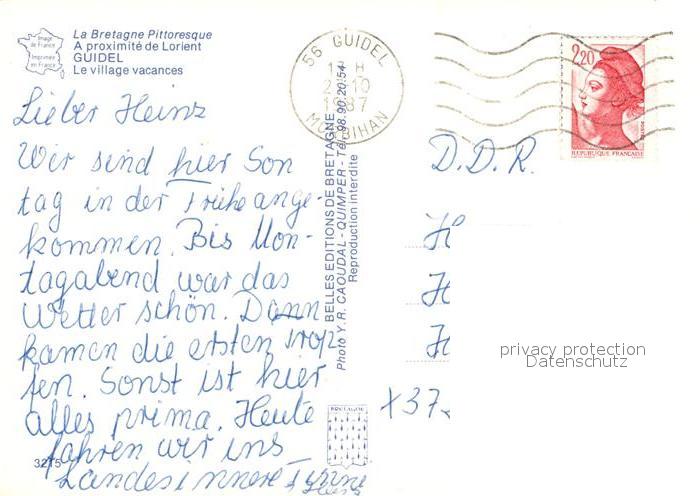 La Bretagne Pittoresque
A proximité de Lorient
GUIDEL
Le village vacances
Image de France
Imprimée en France
Lieber Heinz
Wir sind hier Son
tag in der Frühe ange-
kommen. Bis Mon-
tagabend war das
Wetter schön. Dann
kamen die ersten Trop
fen. Sonst ist hier
alles prima. Heute
fahren wir ins
Landesinnere
3215
BELLES EDITIONS DE BRETAGNE
Photo Y. R. CAOUDAL - QUIMPER - Tél. 98.90.20.54
Reproduction interdite
BRETAGNE
56 GUIDEL
H
10
1987
MORBIHAN
2,20
REPUBLIQUE FRANÇAISE
D.D.R.
H
H
H
X37
privacy protection
Datenschutz